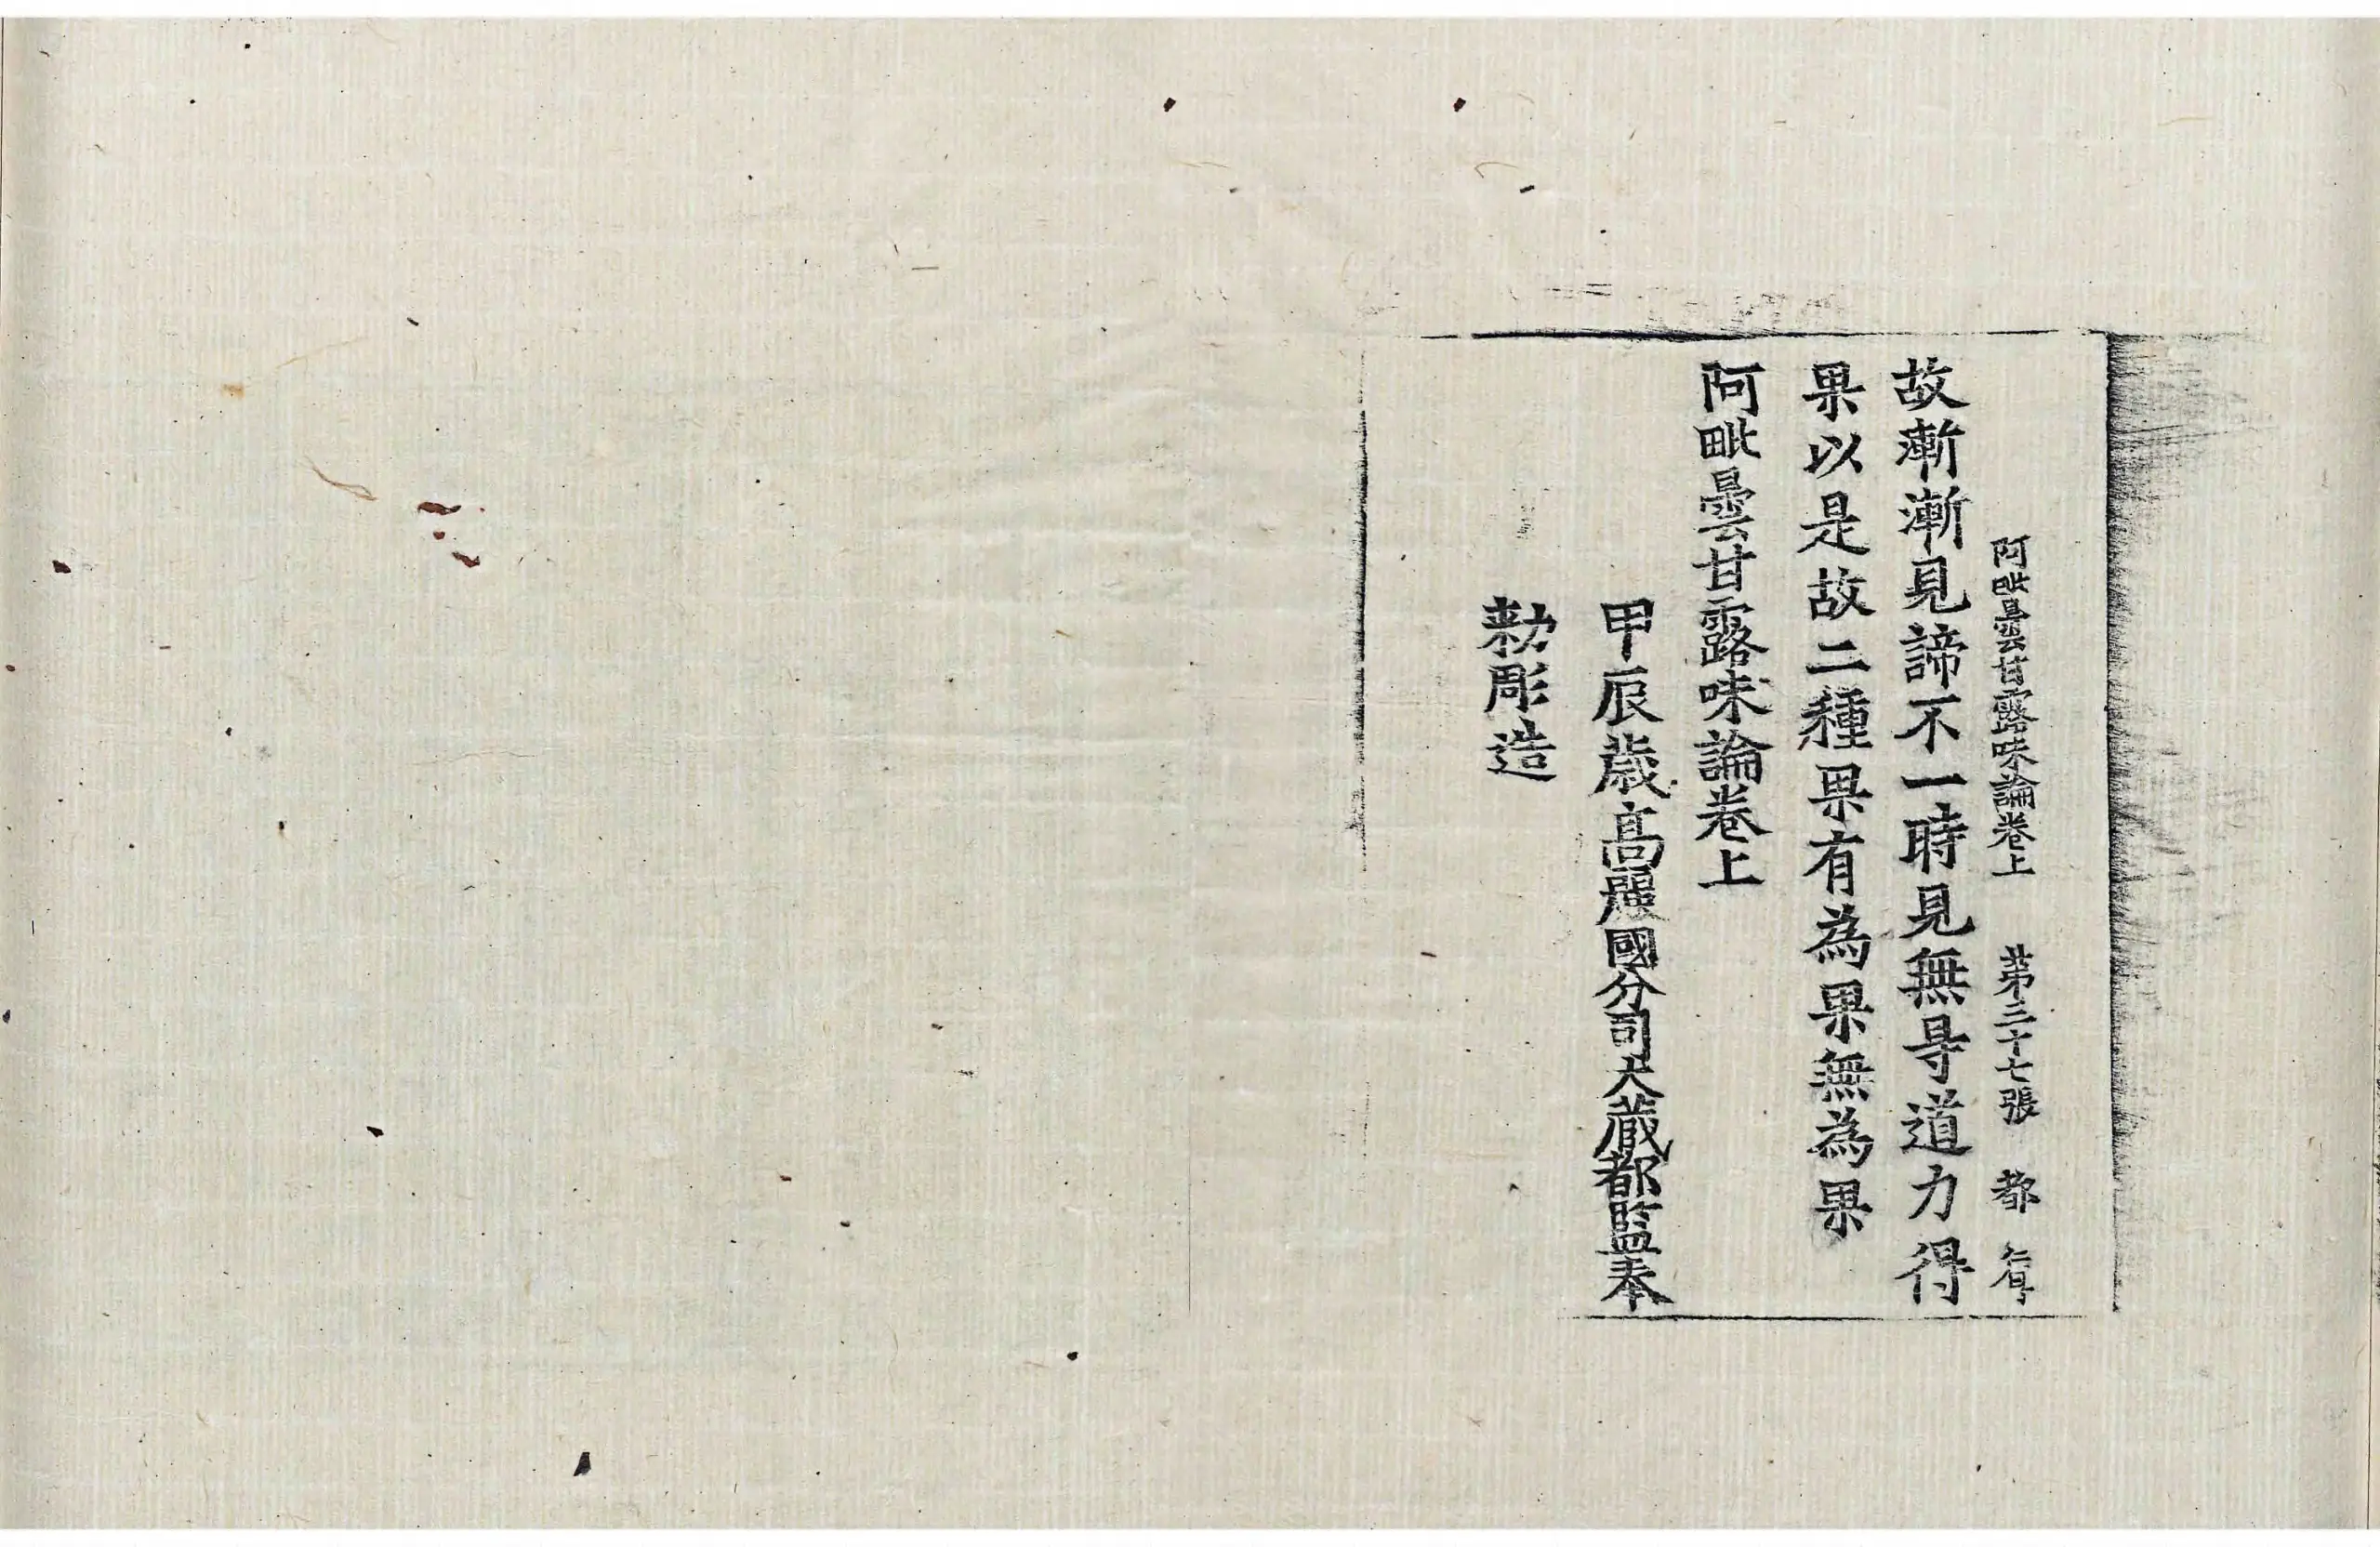 阿毗曇甘露味論卷上 第三十七張 都
故漸漸見諦不一時見無㝵道力得
果以是故二種果有為果無為果
阿毗曇甘露味論卷上
甲辰歲高麗國分司大藏都監奉
勑彫造